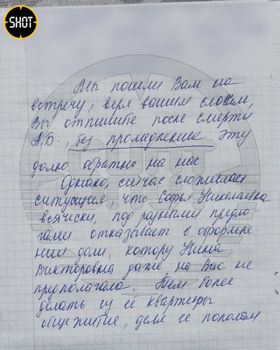 SHOT
Мы пошли Вам на
встречу, веря вашим словам,
Вы отпишите после смерти
А.В., без промедления эту
долю обратно на нас
Однако, сейчас сложилась
ситуация, что Софья Николаевна
всячески, под разными предло
гами отказывает в оформле
нии доли, которую Нина
Викторовна даже на Вас не
предполагала. Тем более
делать из её квартиры
общежитие, деля её пополам